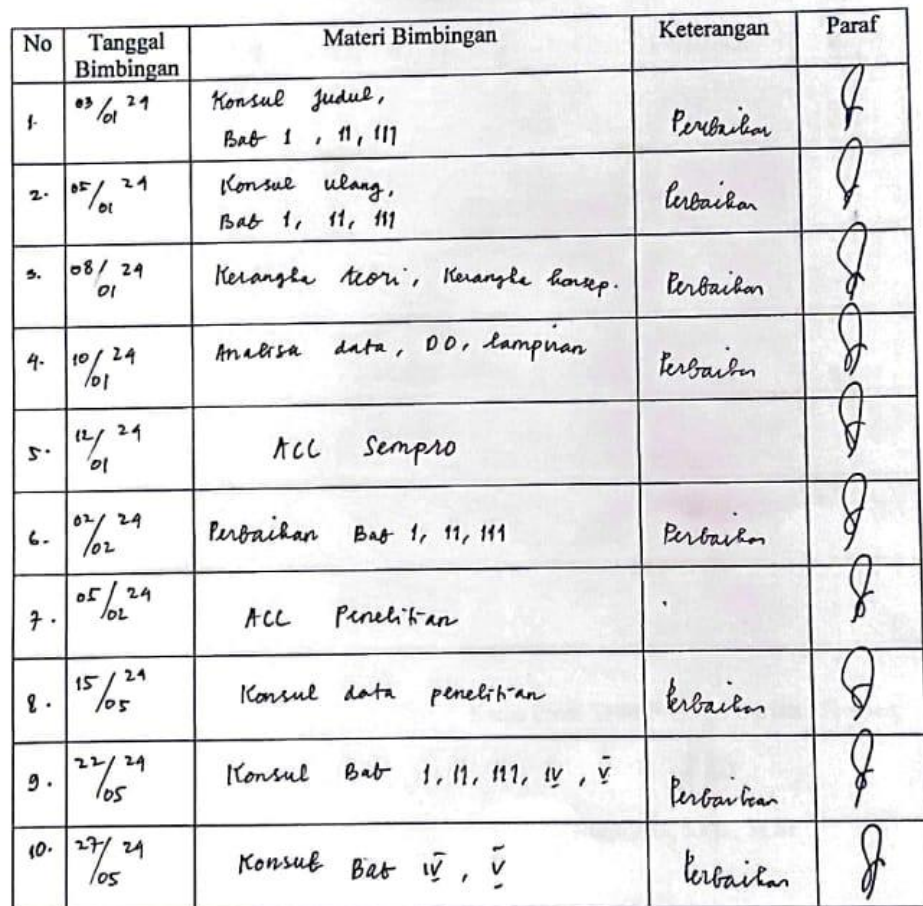 No Tanggal Bimbingan Materi Bimbingan Keterangan Paraf
1. 03/01 24 Konsul Judul, Bab I, II, III Perbaikan
2. 05/01 24 Konsul ulang, Bab I, II, III Perbaikan
3. 08/01 24 Kerangka teori, Kerangka konsep. Perbaikan
4. 10/01 24 Analisa data, DO, lampiran Perbaikan
5. 12/01 24 ACC Sempro
6. 02/02 24 Perbaikan Bab I, II, III Perbaikan
7. 05/02 24 ACC Penelitian
8. 15/05 24 Konsul data penelitian Perbaikan
9. 22/05 24 Konsul Bab I, II, III, IV, V Perbaikan
10. 27/05 24 Konsul Bab IV, V Perbaikan